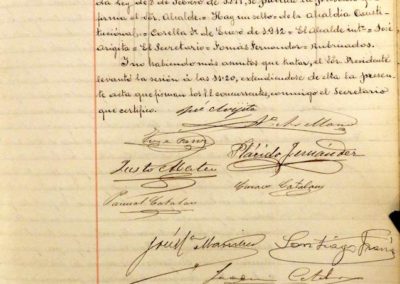 la ley de 2 de Febrero de
firma el Sor. Alcalde = Hay un sello de la Alcaldia Consti-
tucional = Corella 1º de Enero de 1912 = El Alcalde intº = José
Arigita = El Secretario = Tomás Fernandez = Rubricados.
Y no habiendo más asuntos que tratar, el Sor. Presidente
levantó la sesión á las 11'20, extendiendose de ella la presen-
te acta que firman los S.S. concurrentes, conmigo el Secretario
que certifico.
José Arigita
Justo Mateo
Plácido Fernández
Pascual Catalan
Catalan
José Mª
Santiago